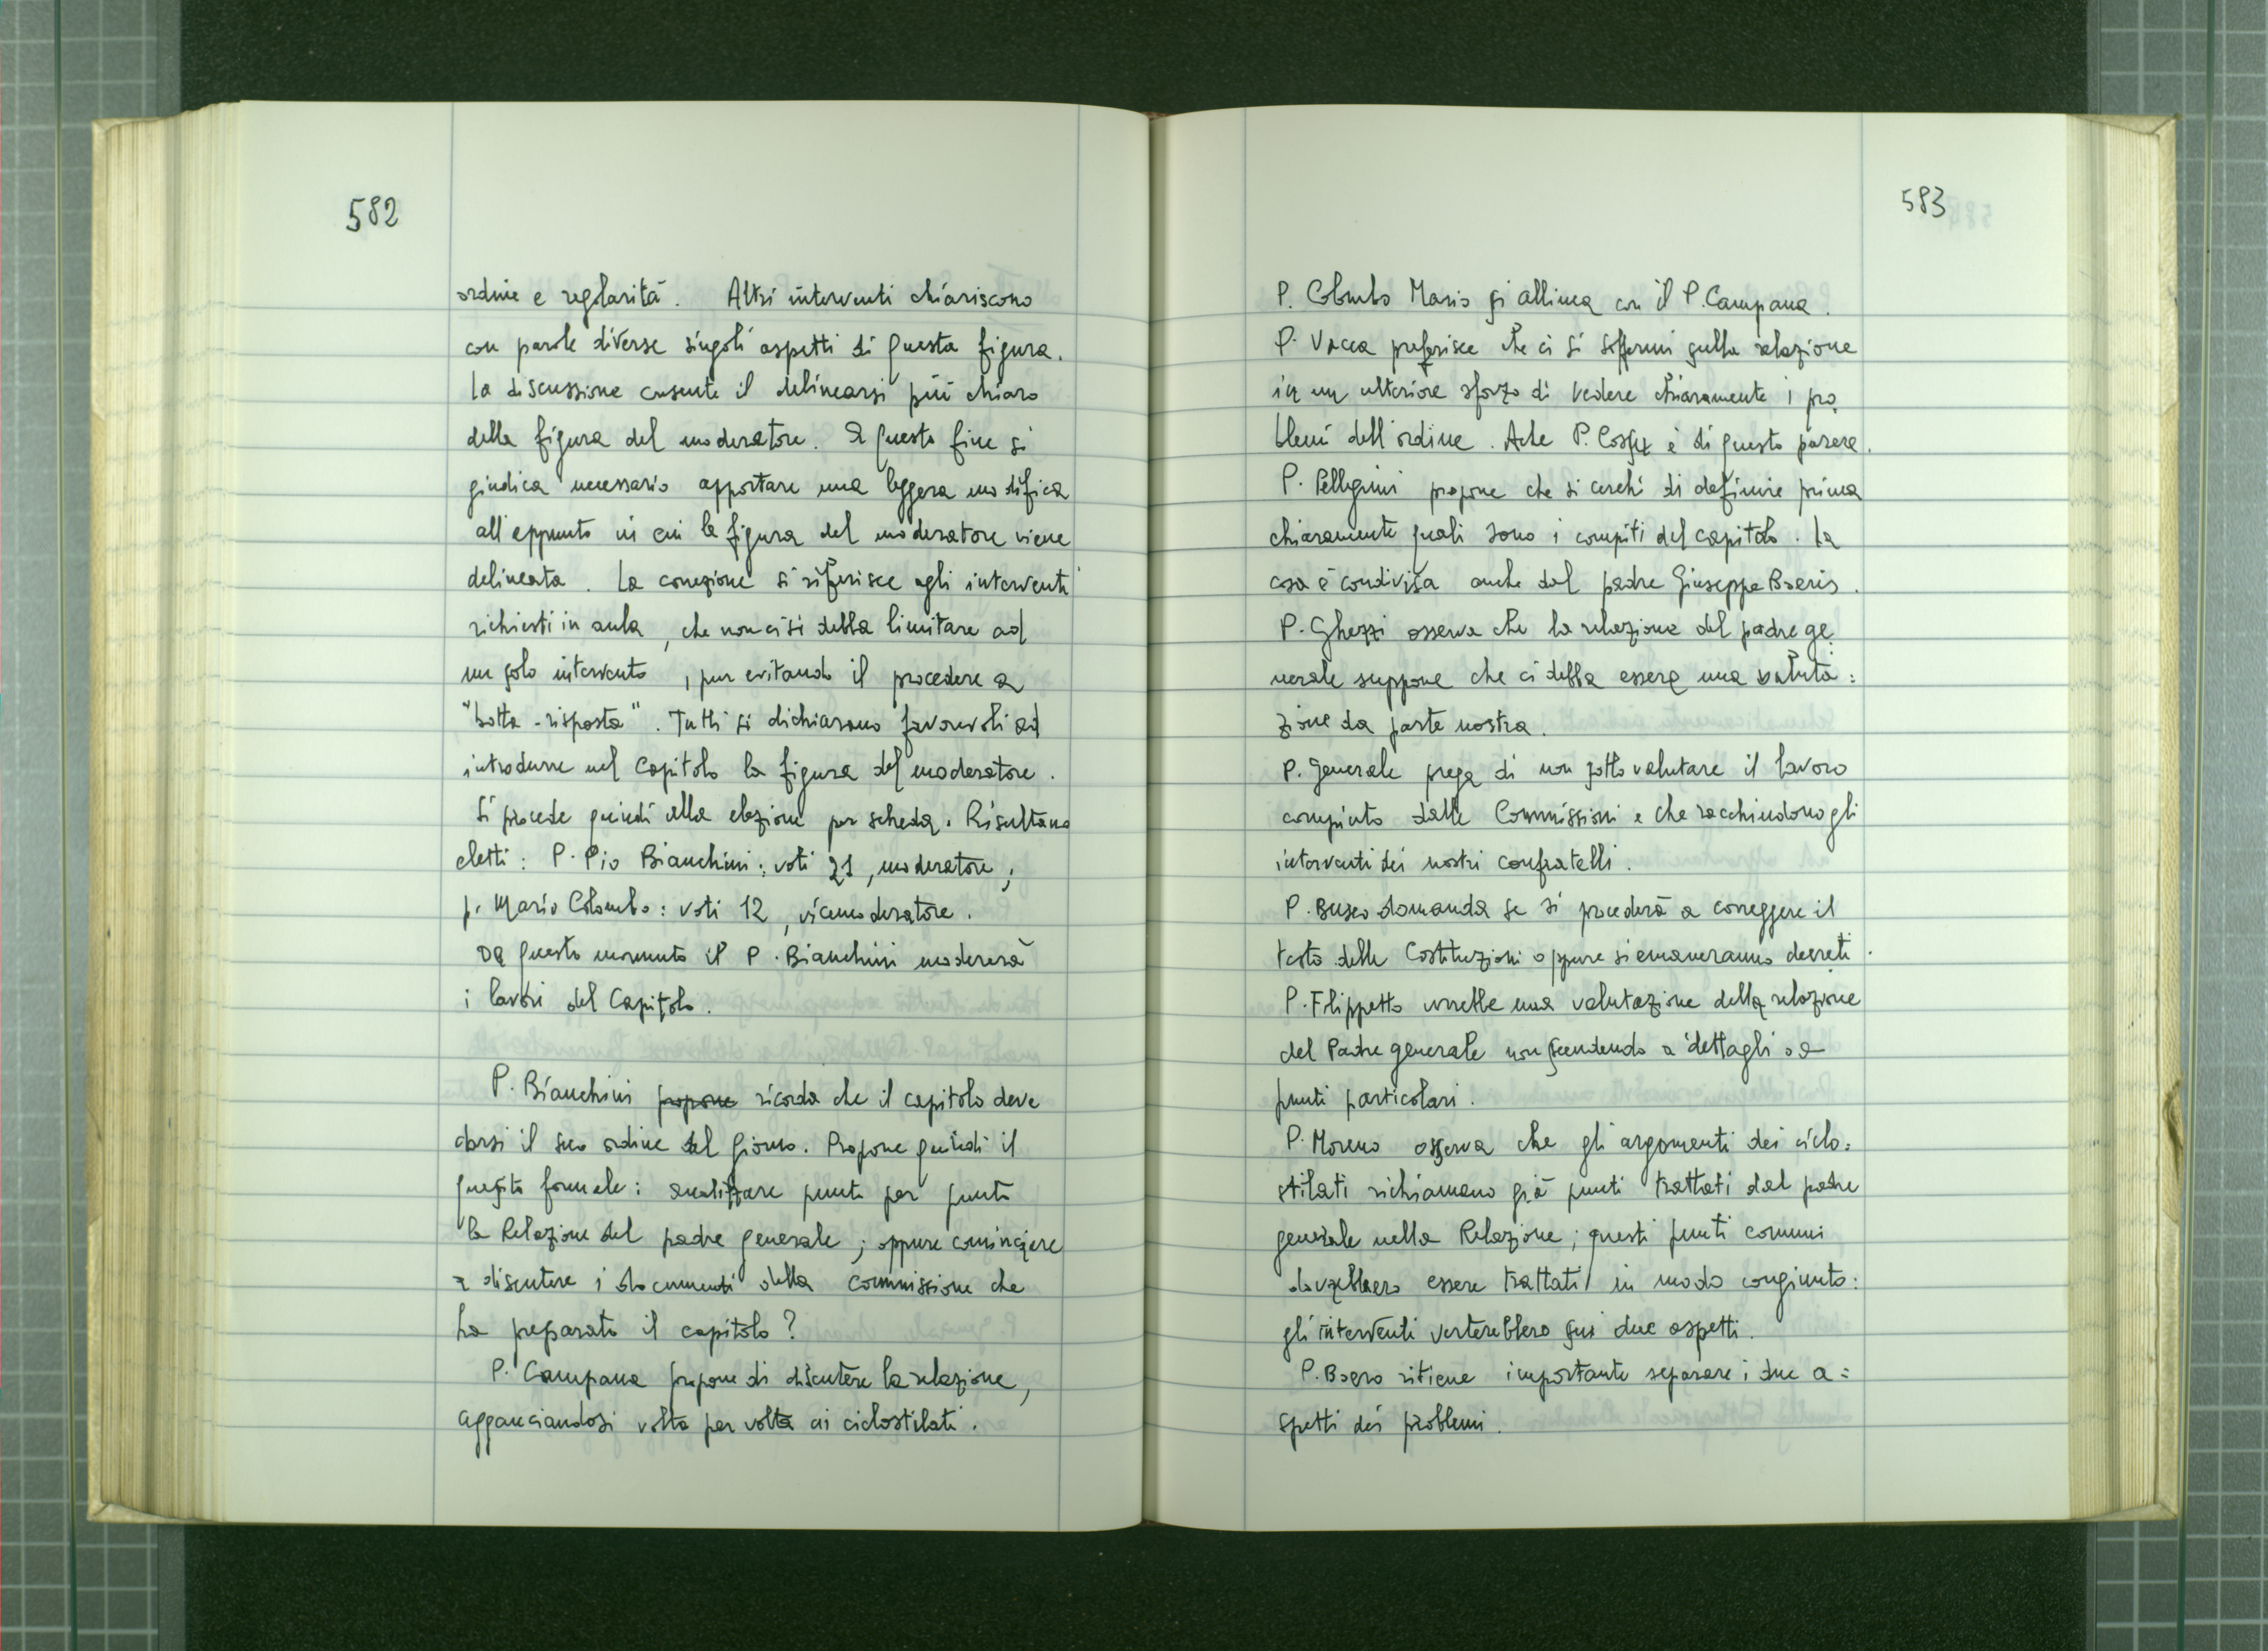 582
ordine e regolarità. Altri interventi chiariscono
con parole diverse singoli aspetti di questa figura.
la discussione consente il delinearsi più chiaro
della figura del moderatore. A questo fine si
giudica necessario apportare una leggera modifica
all'appunto in cui la figura del moderatore viene
delineata. La correzione si riferisce agli interventi
richiesti in aula, che non ci si debba limitare ad
un solo intervento, pur evitando il procedere a
"botta-risposta". Tutti si dichiarano favorevoli ad
introdurre nel Capitolo la figura del moderatore.
Si procede quindi alla elezione per scheda. Risultano
eletti: P. Pio Bianchini: voti 21, moderatore;
p. Mario Colombo: voti 12, vicemoderatore.
Da questo momento il P. Bianchini modererà
i lavori del Capitolo.
P. Bianchini propone ricorda che il capitolo deve
darsi il suo ordine del giorno. Propone quindi il
quesito formale: analizzare punto per punto
la Relazione del padre generale; oppure cominciare
a discutere i documenti della Commissione che
ha preparato il capitolo?
P. Campana propone di discutere la relazione,
agganciandosi volta per volta ai ciclostilati.
583
P. Colombo Mario si allinea con il P. Campana.
P. Vacca preferisce che ci si soffermi sulla relazione
in un ulteriore sforzo di vedere chiaramente i pro
blemi dell'ordine. Ache P. è di questo parere.
P. Pellegrini propone che si cerchi di definire prima
chiaramente quali sono i compiti del capitolo. La
cosa è condivisa anche dal padre Giuseppe Boeris.
P. Ghezzi osserva che la relazione del padre ge
nerale suppone che ci debba essere una valuta=
zione da parte nostra.
P. Generale prega di non sottovalutare il lavoro
compiuto dalle Commissioni e che racchiudono gli
interventi dei nostri confratelli.
P. Busco domanda se si procederà a correggere il
testo delle Costituzioni oppure si emaneranno decreti.
P. Filippetto vorrebbe una valutazione della relazione
del Padre generale non scendendo a dettagli o a
punti particolari.
P. Moreno osserva che gli argomenti dei ciclo=
stilati richiamano già punti trattati dal padre
generale nella Relazione; questi punti comuni
dovrebbero essere trattati in modo congiunto:
gli interventi verterebbero sui due aspetti.
P. Boero ritiene importante separare i due a=
spetti dei problemi.